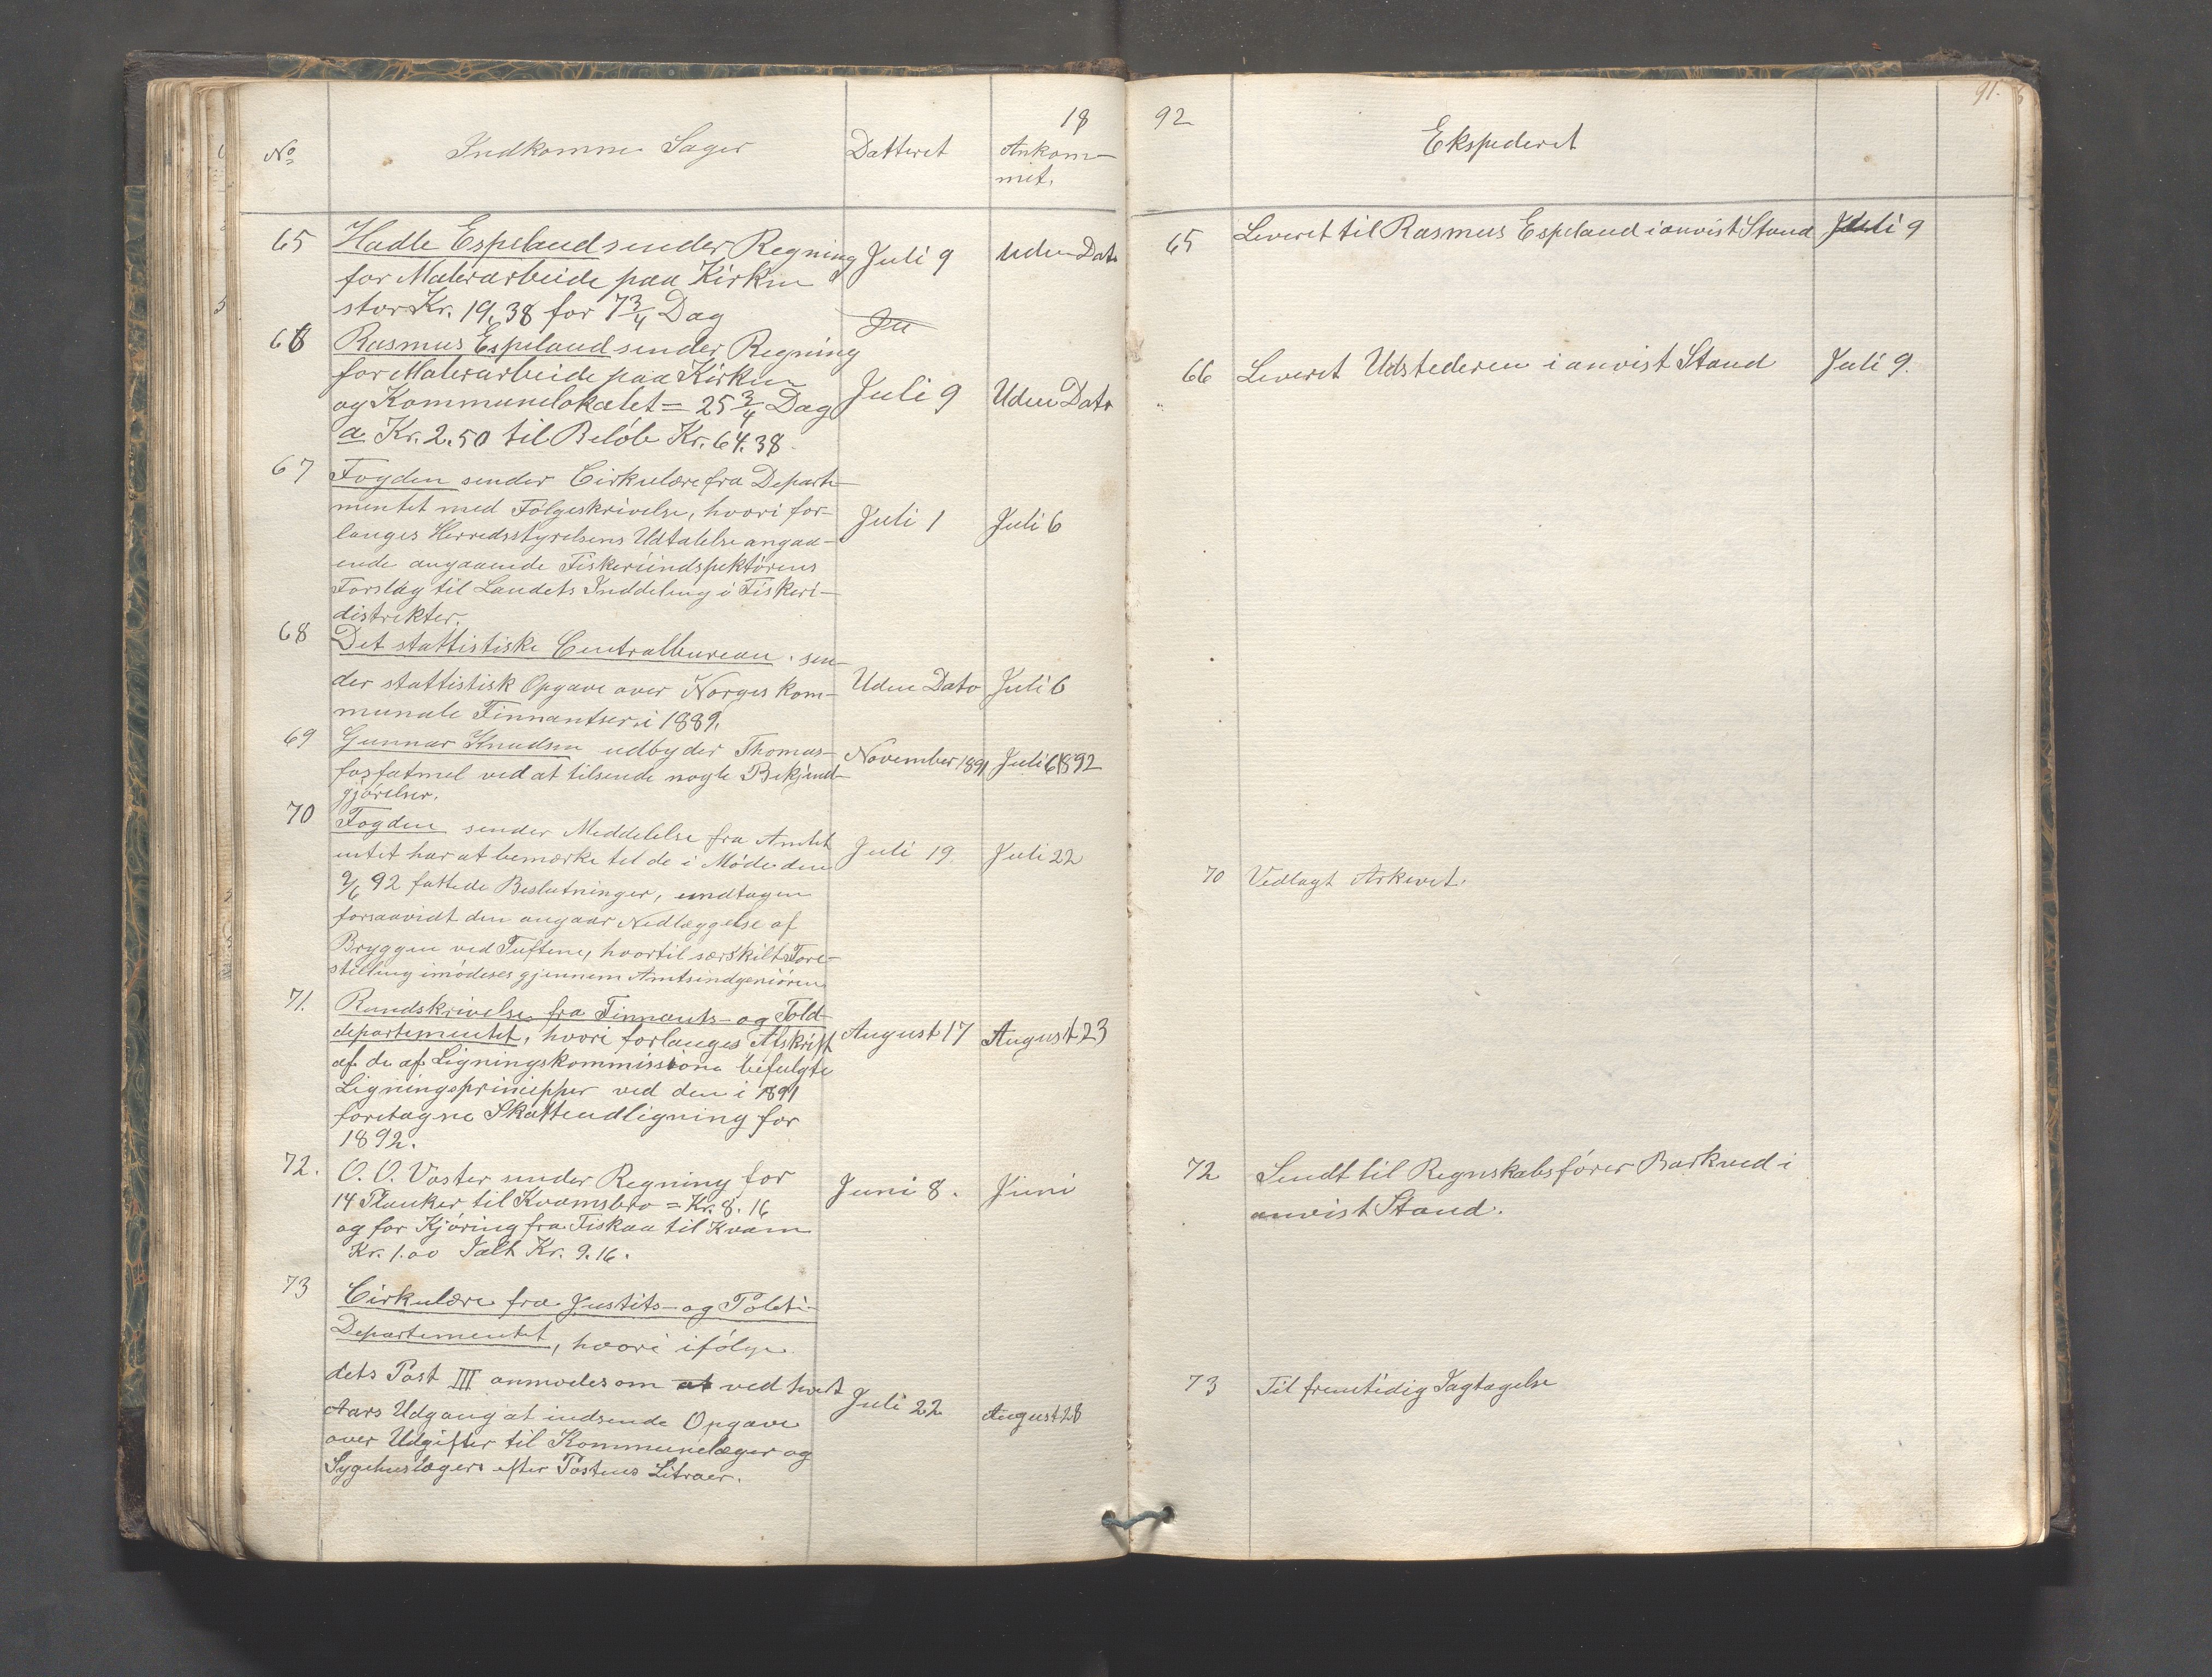 18 92
91.
No Indkomne Sager Datteret Ankom-
met. Ekspederet
65 Hadle Espeland sender Regning Juli 9 Uden Dato
for Malerarbeide paa Kirken
stor Kr. 19,38 for 7 3/4 Dag
66 Rasmus Espeland sender Regning
for Malerarbeide paa Kirken
og Kommunelokalet = 25 3/4 Dag Juli 9 Uden Dato
a Kr. 2.50 til Beløb Kr. 64.38.
67 Fogden sender Cirkulære fra Departe-
mentet med Følgeskrivelse, hvori for- Juli 1 Juli 6
langes Herredsstyrelsens Udtalelse angaa-
ende angaaende Fiskeriindspektørens
Forslag til Landets Inddeling i Fiskeri-
distrikter.
68 Det stattistiske Centralbureau. sen-
der stattistisk Opgave over Norges kom- Uden Dato Juli 6
munale Finnantser i 1889.
69 Gunnar Knudsen udbyder Thomas- November 1891 Juli 6 1892
fosfatmel ved at tilsende nogle Bekjend-
gjørelser.
70 Fogden sender Meddelelse fra Amtet
intet har at bemærke til de i Møde den Juli 19. Juli 22
9/6 92 fattede Beslutninger, undtagen
forsaavidt den angaar Nedlæggelse af
Bryggen ved Tuftene, hvortil særskilt Fore-
stilling imødeses gjennem Amtsindgeniøren
71. Rundskrivelse fra Finnants- og Told-
departementet, hvori forlanges Afskrift August 17 August 23
af de af Ligningskommissione befulgte
Ligningsprincipper ved den i 1891
foretagne Skatteudligning for
1892.
72. O. O. Voster sender Regning for
14 Planker til Kvamsbro = Kr. 8.16 Juni 8. Juni
og for Kjøring fra Fiskaa til Kvam
Kr. 1.00 Ialt Kr. 9.16.
73 Cirkulære fra Justits- og Politi-
Departementet, hvori ifølge
dets Post III anmodes om at ved hvert Juli 22 August 28
Aars Udgang at indsende Opgave
over Udgifter til Kommunelæger og
Sygehuslæger efter Postens Litraer.
65 Leveret til Rasmus Espeland i anvist Stand Juli 9
66 Leveret Udstederen i anvist Stand Juli 9.
70 Vedlagt Arkivet.
72 Sendt til Regnskabsfører Barkved i
anvist Stand.
73 Til fremtidig Iagtagelse